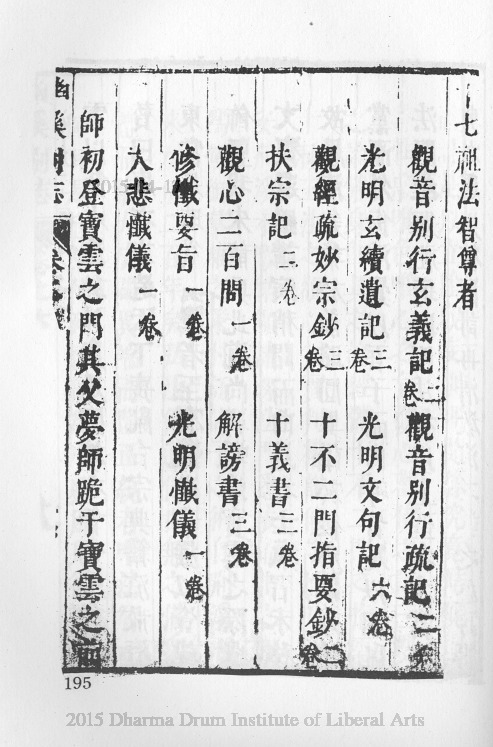 十七祖法智尊者
觀音別行玄義記二卷 觀音別行疏記二卷
光明玄續遺記三卷 光明文句記六卷
觀經疏妙宗鈔三卷 十不二門指要鈔二卷
扶宗記二卷 十義書三卷
觀心二百問一卷 解謗書三卷
修懺要旨一卷 光明懺儀一卷
大悲懺儀一卷
師初登寶雲之門其父夢師跪于寶雲之
幽溪別志 卷
195
2015 Dharma Drum Institute of Liberal Arts